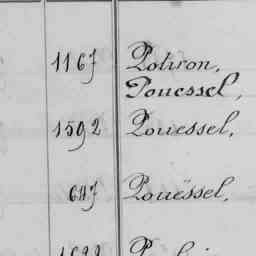 1167 Potiron,
Pouessel,
1592 Pouessel,
647 Pouëssel,